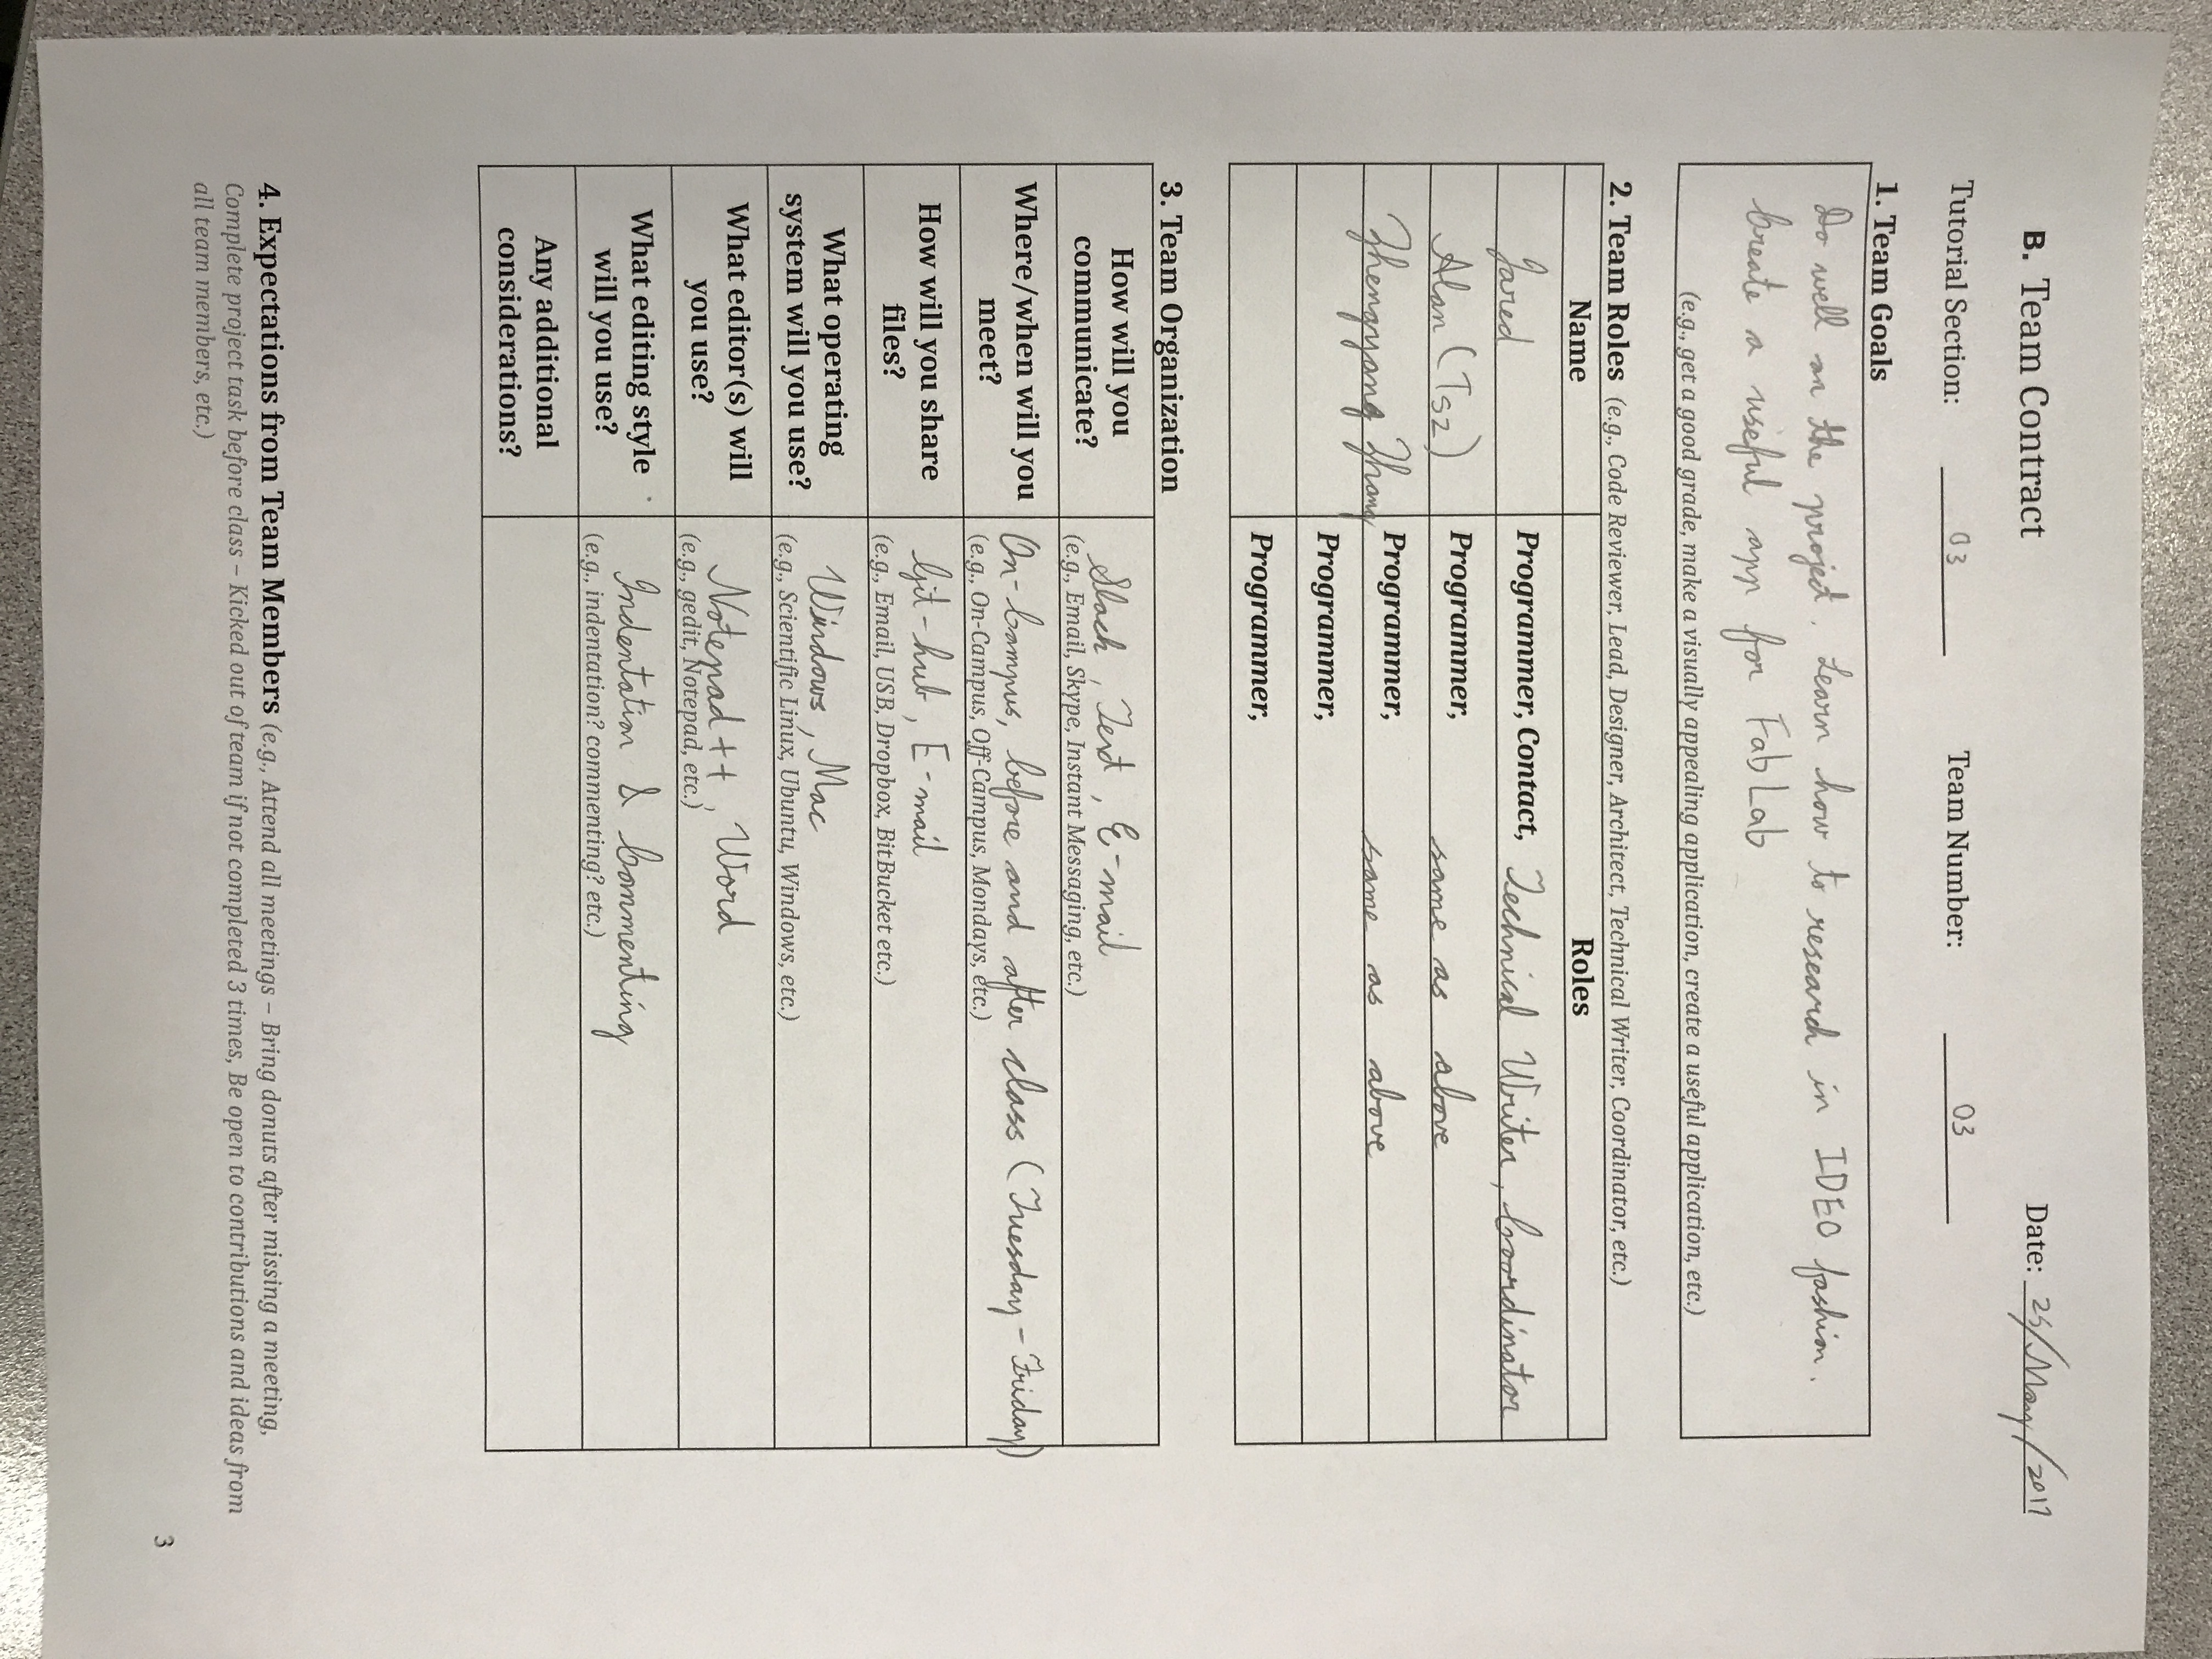 B. Team Contract Date: 25/May/2017
Tutorial Section: 03 Team Number: 03
1. Team Goals
Do well on the project. Learn how to research in IDEO fashion.
Create a useful app for FabLab
(e.g., get a good grade, make a visually appealing application, create a useful application, etc.)
2. Team Roles (e.g., Code Reviewer, Lead, Designer, Architect, Technical Writer, Coordinator, etc.)
Name Roles
Jared Programmer, Contact, Technical Writer, Coordinator
Alan (Tsz) Programmer, same as above
Zhengyang Zhang Programmer, same as above
Programmer,
Programmer,
3. Team Organization
How will you communicate? Slack, Text, E-mail
(e.g., Email, Skype, Instant Messaging, etc.)
Where/when will you meet? On-Campus, before and after class (Tuesday - Friday)
(e.g., On-Campus, Off-Campus, Mondays, etc.)
How will you share files? Git-hub, E-mail
(e.g., Email, USB, Dropbox, BitBucket etc.)
What operating system will you use? Windows, Mac
(e.g., Scientific Linux, Ubuntu, Windows, etc.)
What editor(s) will you use? Notepad++, Word
(e.g., gedit, Notepad, etc.)
What editing style will you use? Indentation & Commenting
(e.g., indentation? commenting? etc.)
Any additional considerations?
4. Expectations from Team Members (e.g., Attend all meetings – Bring donuts after missing a meeting,
Complete project task before class – Kicked out of team if not completed 3 times, Be open to contributions and ideas from
all team members, etc.)
3